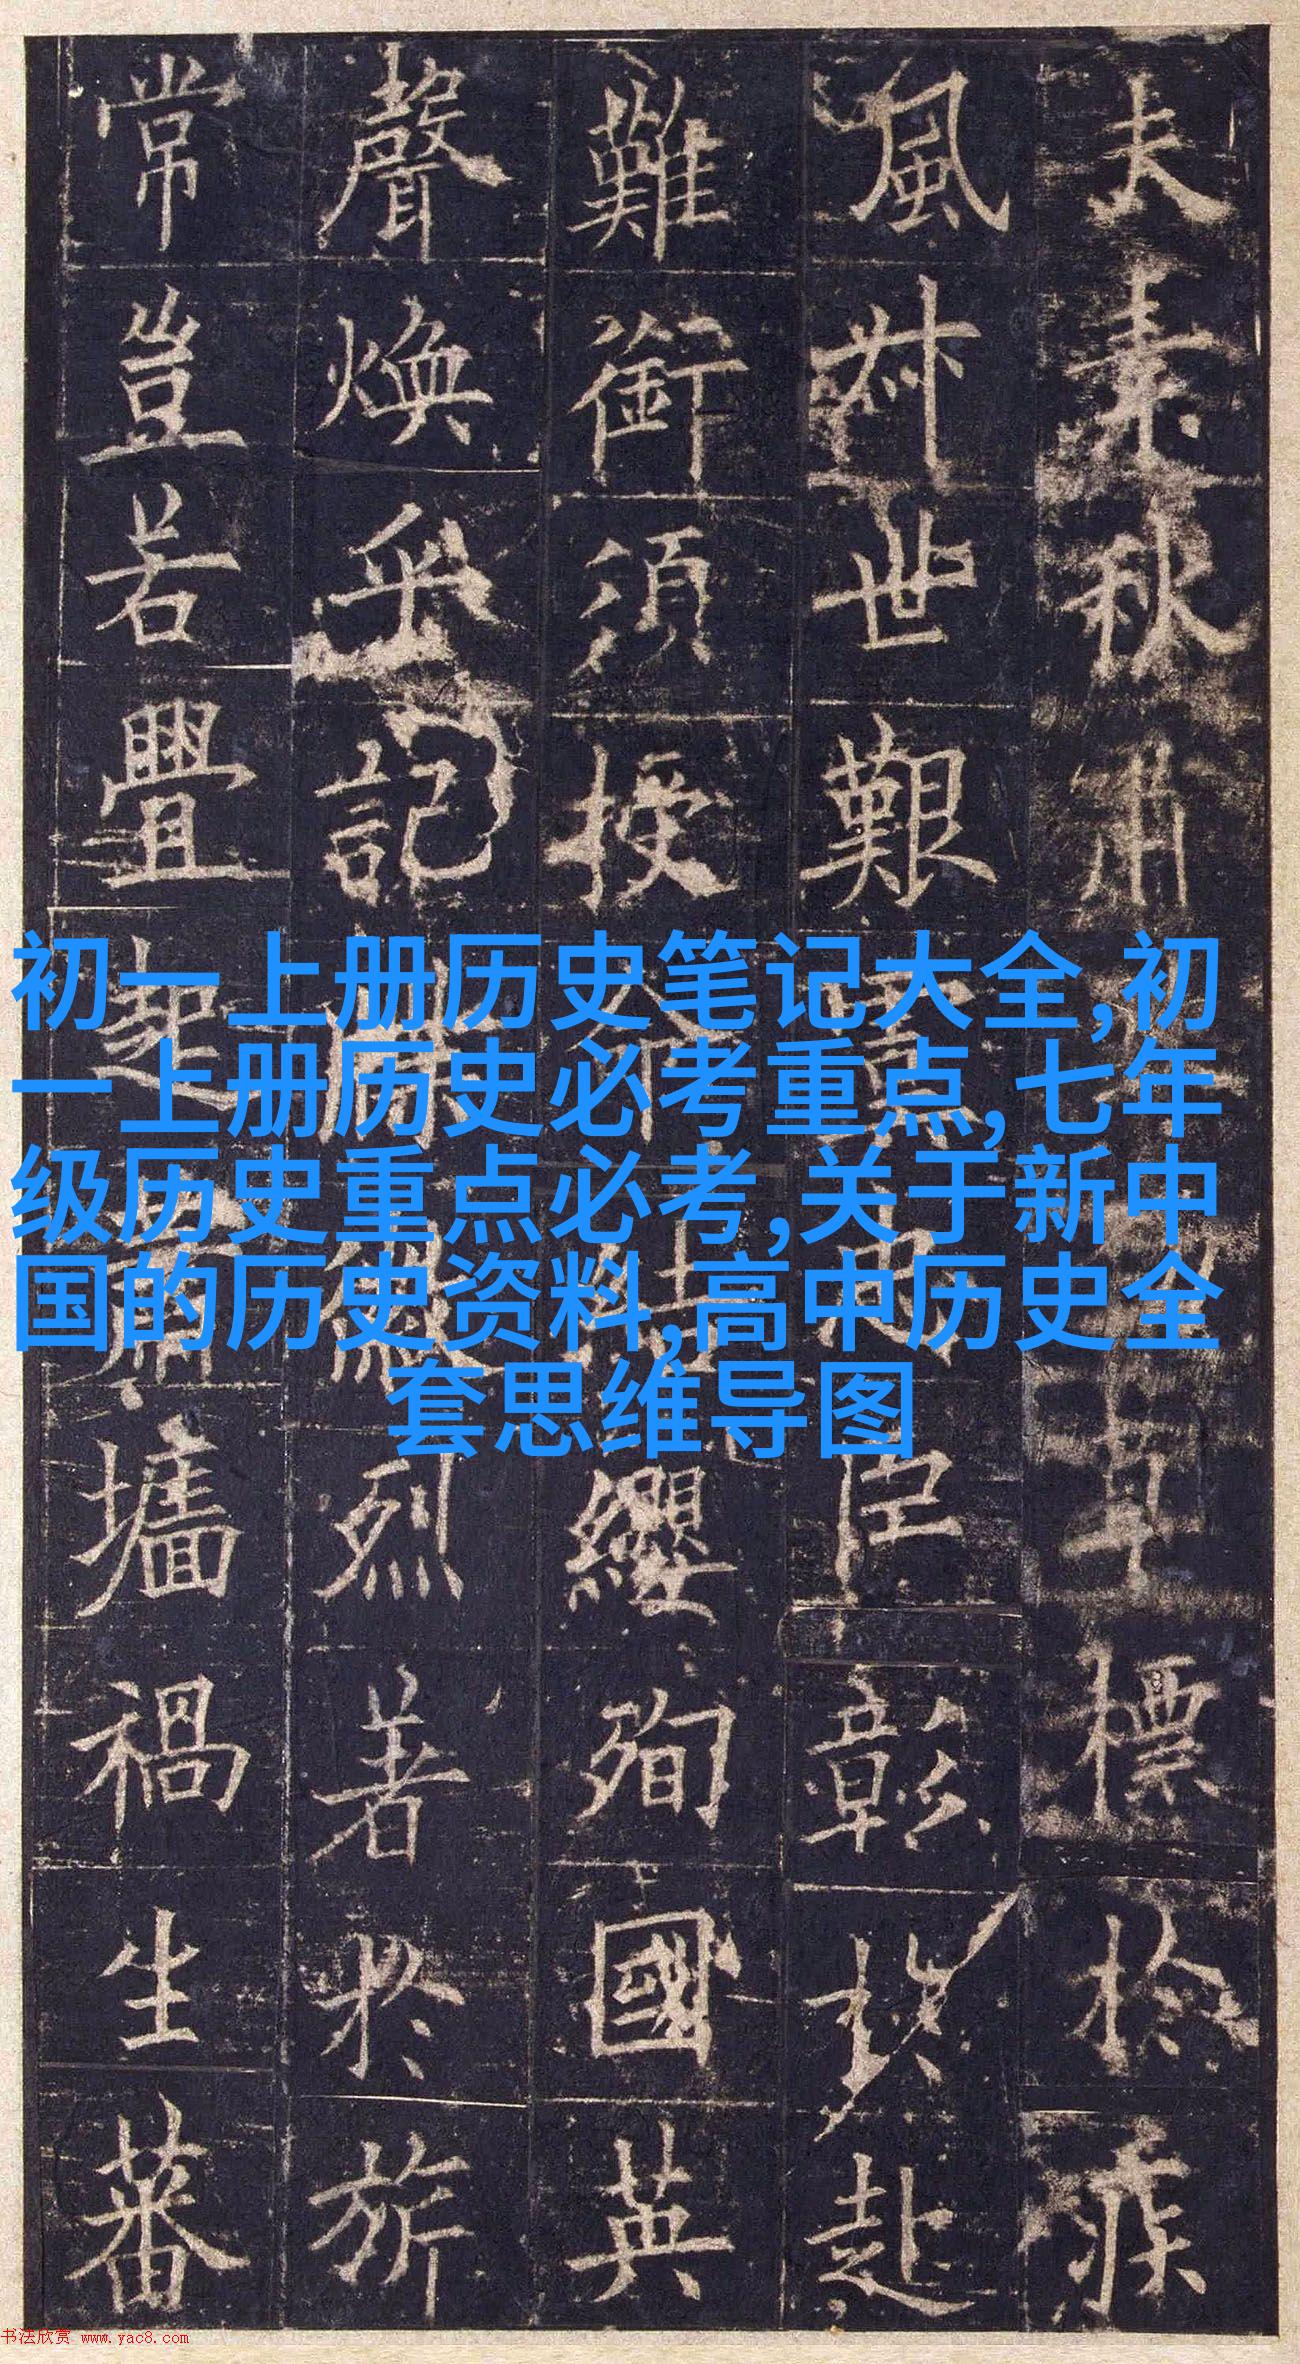 夫素秋肅
標於疾
風叔世艱
臣彰於赴
難銜須授命
結纓殉國英
聲煥乎記牒
徽烈著於旂
常豈若舋起
蕭墻禍生蕃
初一上册历史笔记大全,初
一上册历史必考重点,七年
级历史重点必考,关于新中
国的历史资料,高中历史全
套思维导图
书法欣赏 www.yac8.com